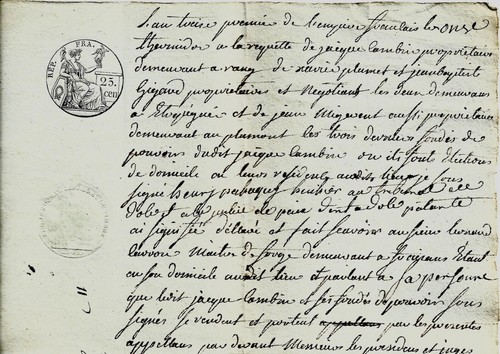 REP. FRA.
25.
cen
L'an treize premier de l'empire francais le onze
thermidor a la requette de jacque Cambin proprietaire
demeurant a rang de xavié plumet et jean baptiste
Gigand proprietaires et Negotiant les deux demeurans
a et de jean Mignerot aussi proprietaire
demeurant au plumont les trois derniers fondés de
pouvoirs dudit jacque Cambin ou ils font Elections
de domicile ou leurs residents audits lieux je sous
signé henry huissier au tribunal de
Dole et a la justice de paix dont a dole patanté
ai signifié déclaré et fait scavoir au sieur leonard
Maitre de forge demeurant a Etant
au son domicile audit lieu et parlant a sa personne
que ledit jacque Cambin et ses fondés de pouvoir sous
signés se rendent et portent appellans par les presentes
appellans par devant Messieurs les presidens et juges